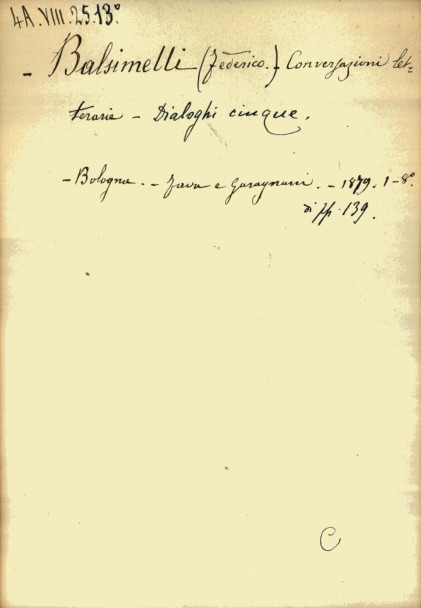 4A.VIII.25.13º
- Balsimelli (Federico. - Conversazioni let=
terarie - Dialoghi cinque.
- Bologna. - Fava e Garagnani. - 1879. 1-8º.
di pp. 139.
C